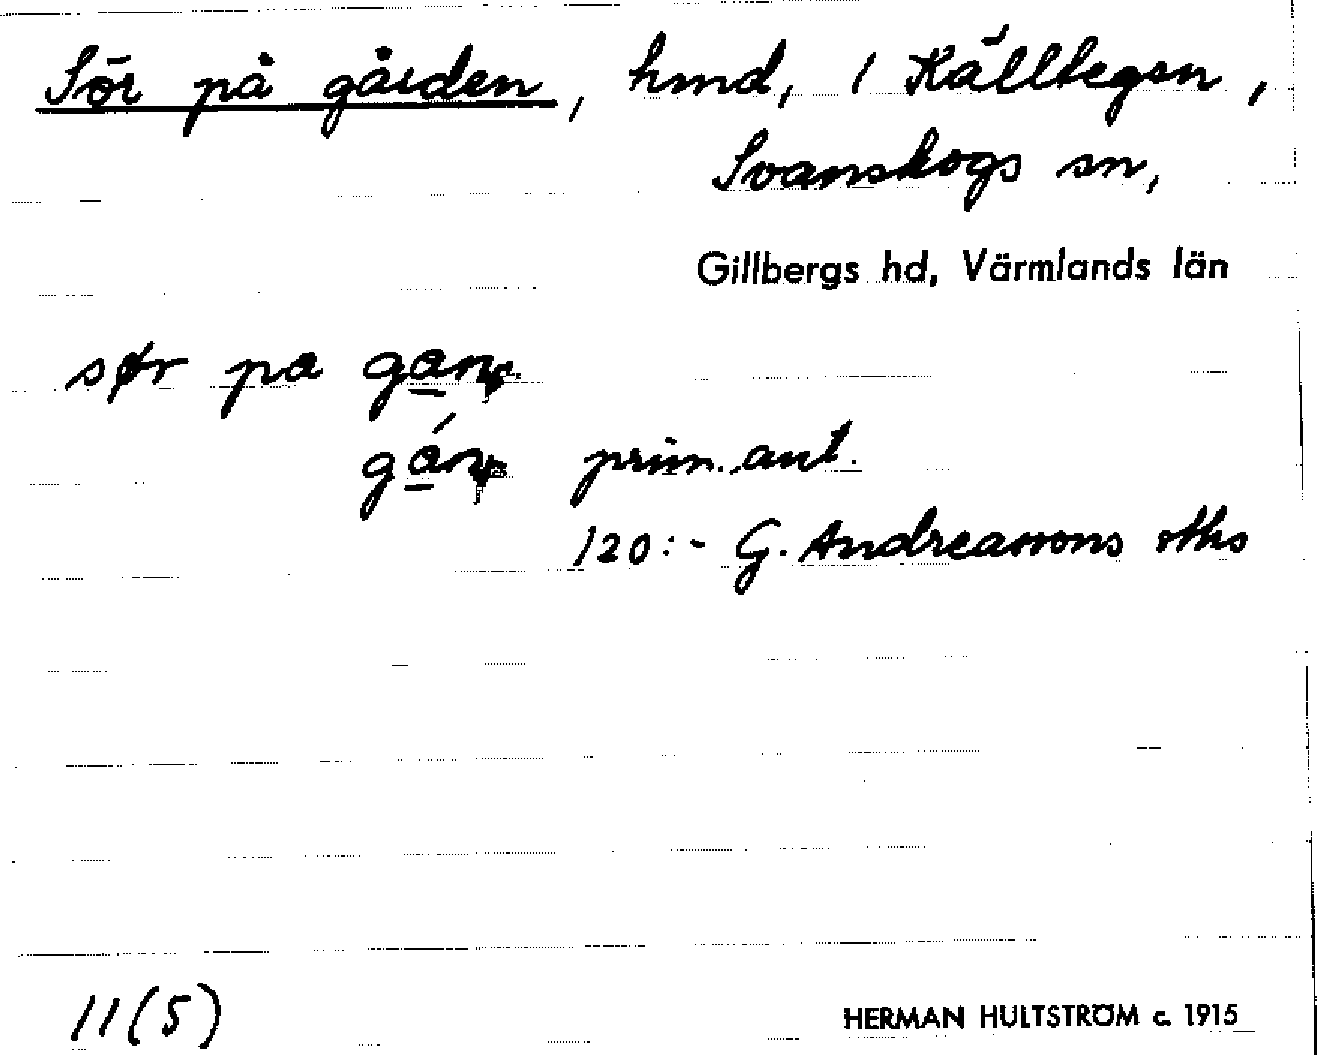 Sör på gården, hmd, 1 Källtegen,
Svanskogs sn,
Gillbergs hd, Värmlands län
sør pa
prim. ant.
120:- G. Andreassons
11(5)
HERMAN HULTSTRÖM c. 1915